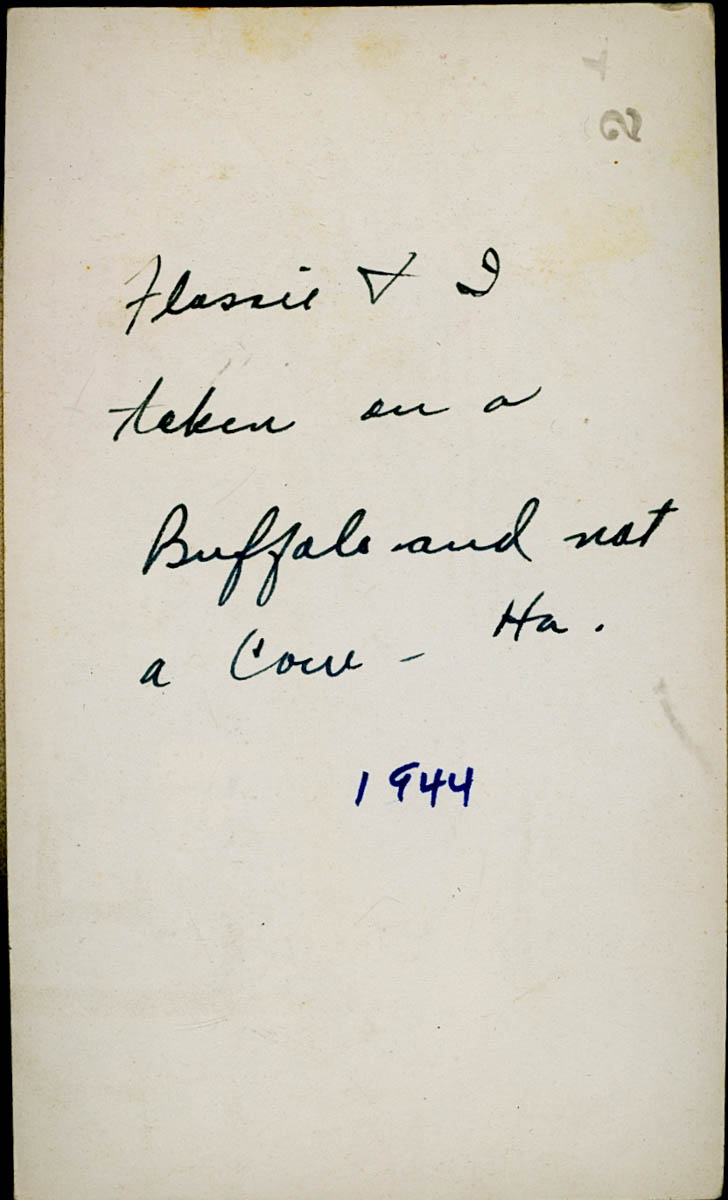 Flossie & I
taken on a
Buffalo and not
a Cow - Ha.
1944